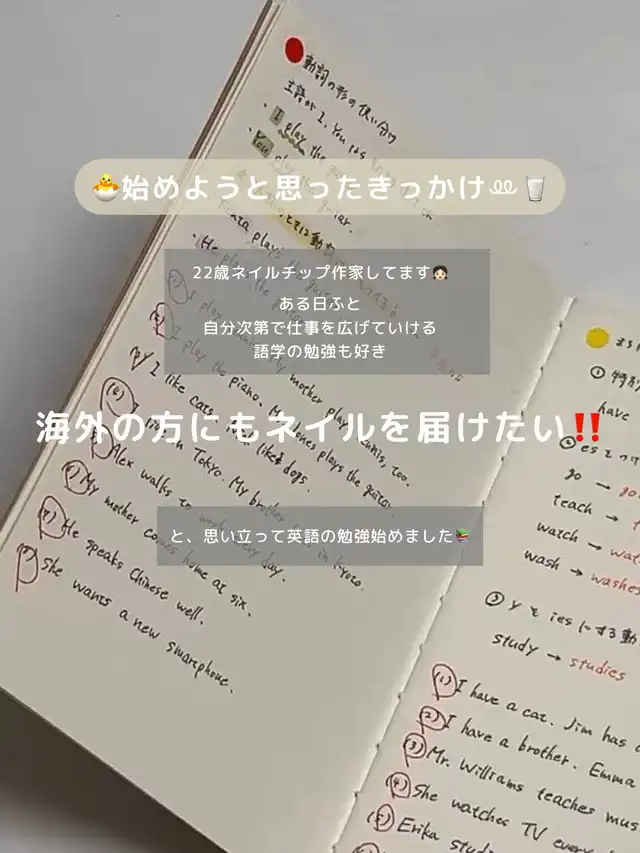 🐣始めようと思ったきっかけ🥛
22歳ネイルチップ作家してます👧🏻
ある日ふと
自分次第で仕事を広げていける
語学の勉強も好き
海外の方にもネイルを届けたい‼️
と、思い立って英語の勉強始めました📚
動詞の形の使い分け
主語が I, You
I play the
You play
Kenta plays the
He plays the guitar
I play
mother plays tennis, too.
I play the piano. Mr. Jones plays the guitar.
I like cats. likes dogs.
in Tokyo. My brother in Kyoto.
Alex walks to every day.
My mother comes home at six.
He speaks Chinese well.
She wants a new smartphone.
①特別
have
②es をつけ
go → go
teach → t
watch → wat
wash → washes
③ y を ies にする動
study → studies
(1) I have a cat. Jim has a
(2) I have a brother. Emma
(3) Mr. Williams teaches mus
(4) She watches TV every
(5) Erika stud